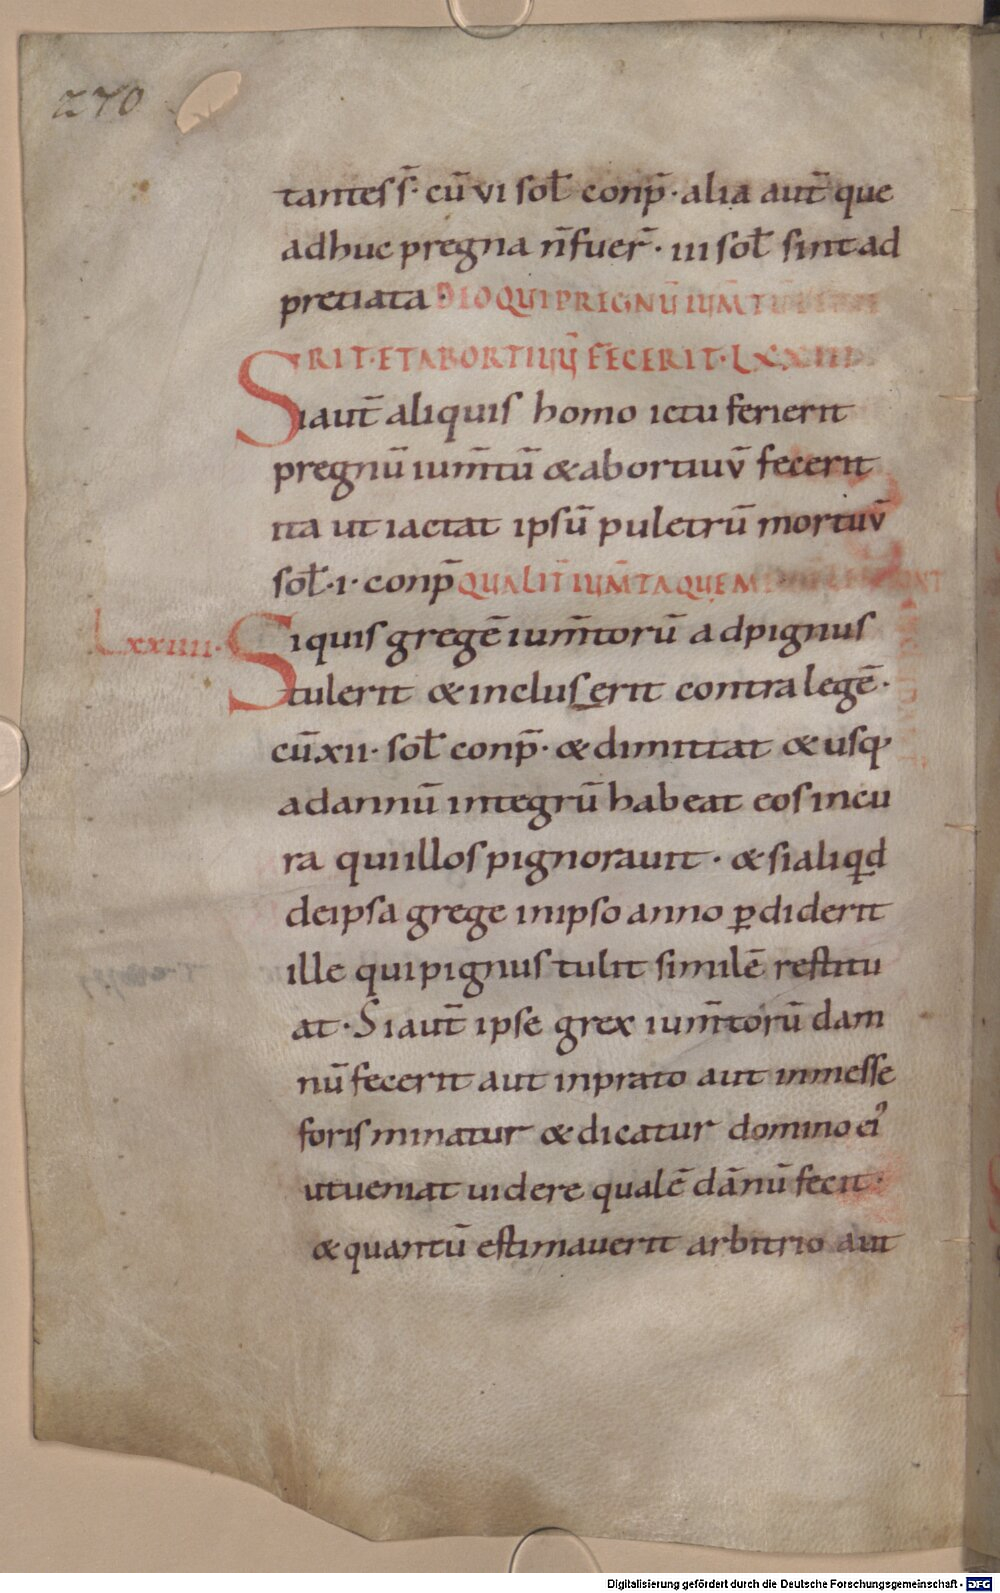 270
tantes s̄· cū vi sol̄ conp̄· alia aut̄ que
adhuc pregna n̄ fuer̄· iii sol̄ sint ad
pretiata· DE EO QUI PREGNŪ IUM̄TŪ
RIT· ET ABORTIUŪ FECERIT· LXXIII
Si aut̄ aliquis homo ictu ferierit
pregnū ium̄tū & abortiuv̄ fecerit
ita ut iactat ipsū puletrū mortuv̄
sol̄·i· conp̄ QUALIT̄ IUM̄TA QUE
Lxxiiii· Si quis gregē ium̄torū ad pignus
tulerit & incluserit contra legē·
cū xii· sol̄ conp̄· & dimittat & usq·
ad annū integrū habeat eos in cu
ra qui illos pignorauit· & si aliqd
de ipsa grege in ipso anno ꝑdiderit
ille qui pignus tulit similē restitu
at· Si aut̄ ipse grex ium̄torū dam
nū fecerit aut in prato aut in messe
foris minatur & dicatur domino ei᾽
ut ueniat uidere qualē dānū fecit·
& quantū estimauerit arbitrio aut
Digitalisierung gefördert durch die Deutsche Forschungsgemeinschaft - DFG